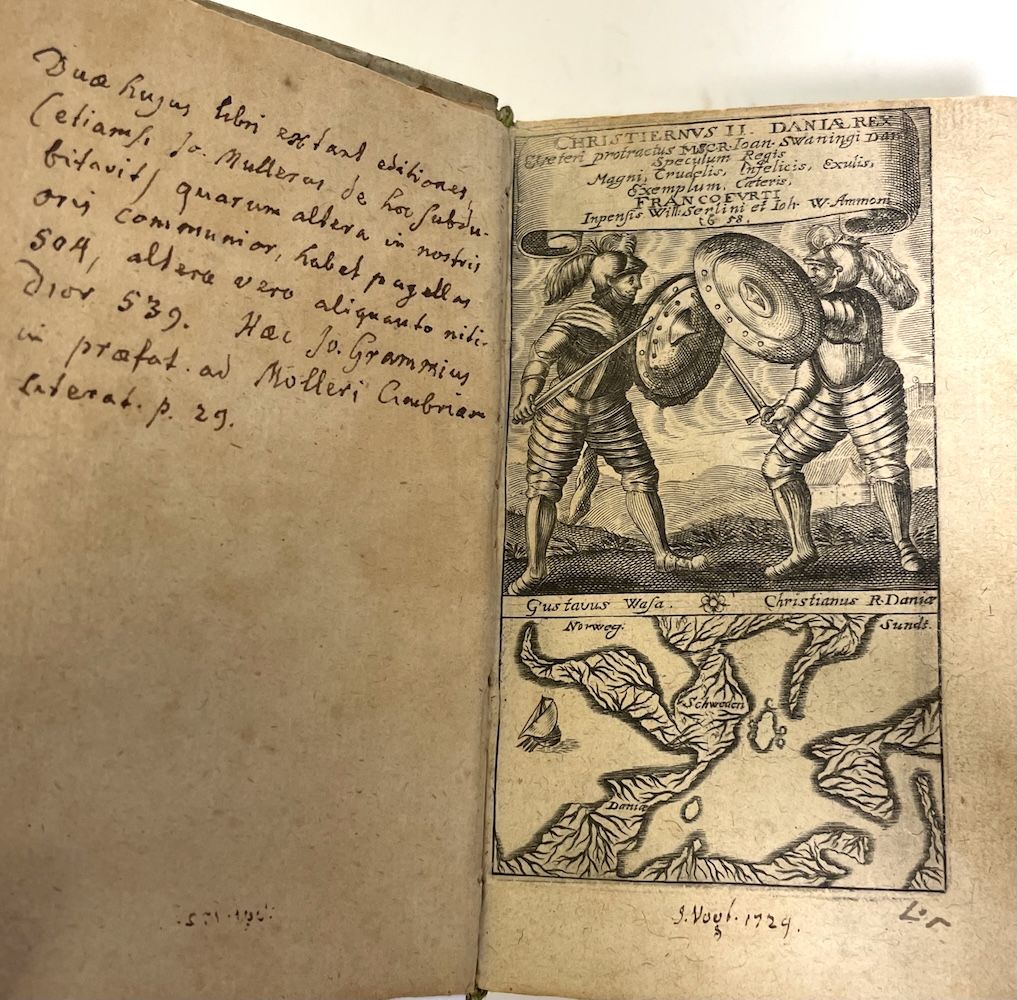 Duæ hujus libri extant editiones,
(etiamsi Jo. Mullerus de hoc subdu-
bitavit) quarum altera in nostris
oris communior, habet pagellas
504, altera vero aliquanto niti-
dior 539. Hæc Jo. Grammius
in præfat. ad Molleri Cimbriam
Literat. p. 29.
CHRISTIERNVS II. DANIÆ REX
E veteri protractus MSCR. Ioan. Swaningi Dan
Speculum Regis
Magni, Crudelis, Infelicis, Exulis,
Exemplum, Cæteris,
FRANCOFVRTI
Inpensis Will. Serlini et Ioh. W. Ammoni
1658.
Gustavus Wasa. Christianus R. Daniæ
Norweg. Sundt.
Schweden
Daniæ
J. Vogt. 1729.